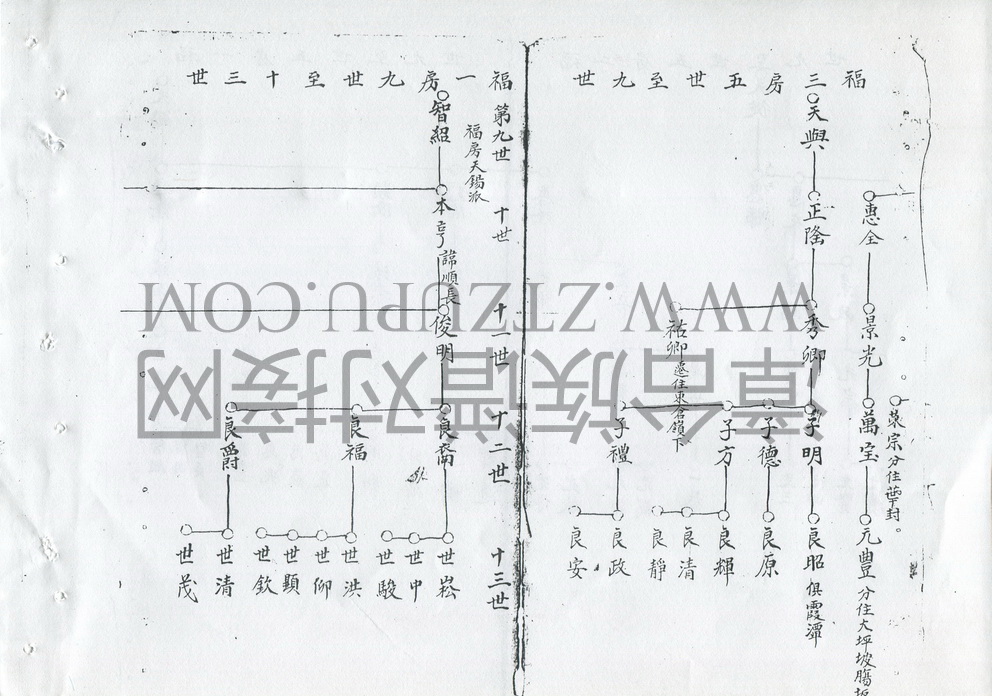 福三房五世至九世
天與
正隆
秀卿
子明
良昭 俱霞潭
惠全
景光
萬宝
元豊 分住大坪坡
分住華封。
祐卿
子德
良原
子方
良輝
良清
良靜
子禮
良政
良安
福一房九世至十三世
第九世
十世
十一世
十二世
十三世
福房天錫派
智紹
本亨 諱順長
俊明
良喬
世崧
世中
世駿
良福
世洪
世仰
世顯
世欽
良爵
世清
世茂
WWW.ZTZUPU.COM
漳台族谱对接网